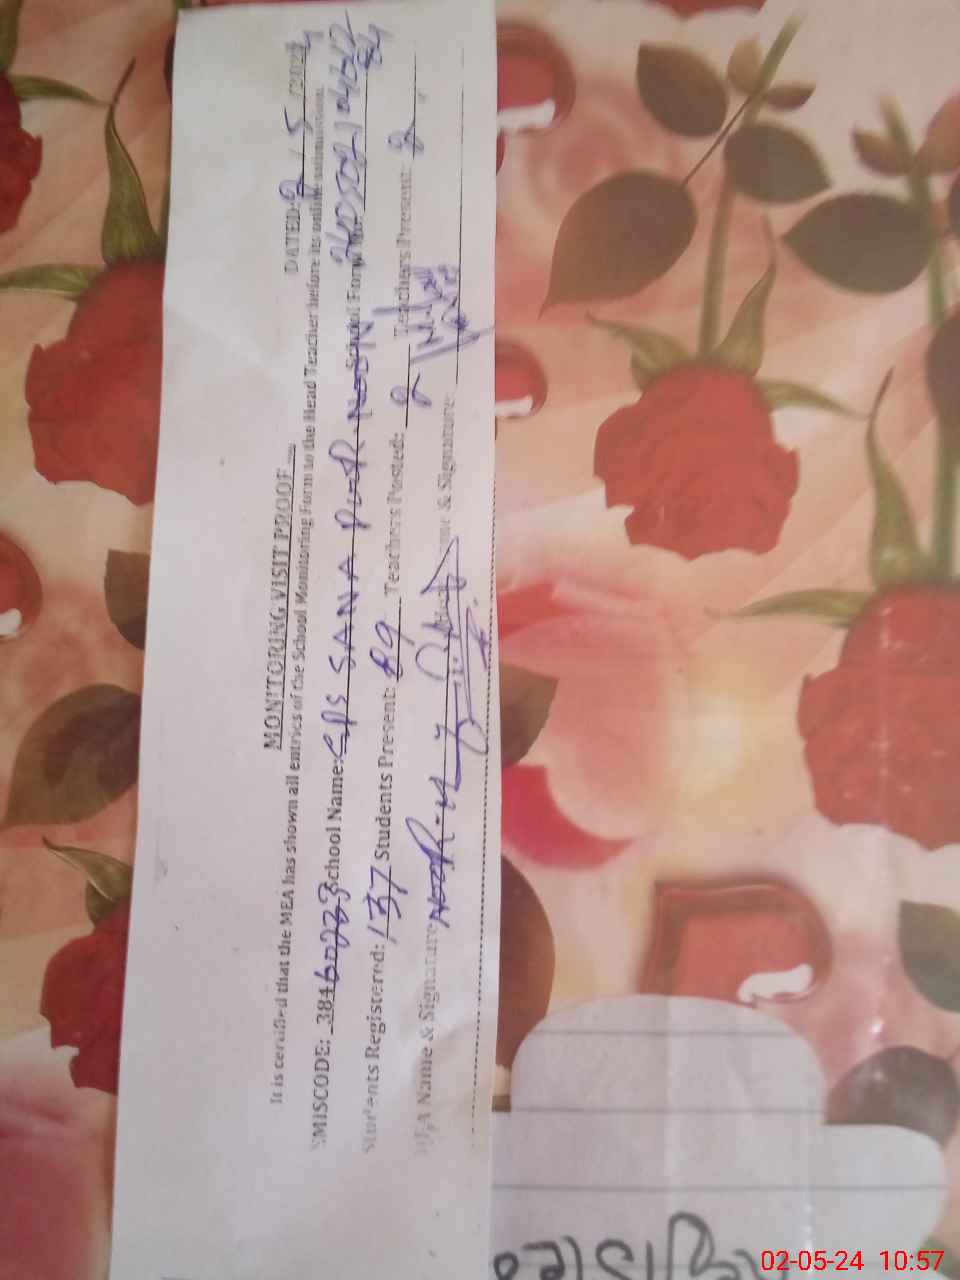 MONITORING VISIT PROOF
DATED: 2 / 5 /2024
It is certified that the MEA has shown all entries of the School Monitoring Form to the Head Teacher before its online submission.
EMISCODE: 38460233 School Name: GPS SANA PUR NOON School Form
Students Registered: 137 Students Present: 89 Teachers Posted: 2 Teachers Present: 2
MEA Name & Signature NOOR & Signature:
02-05-24 10:57